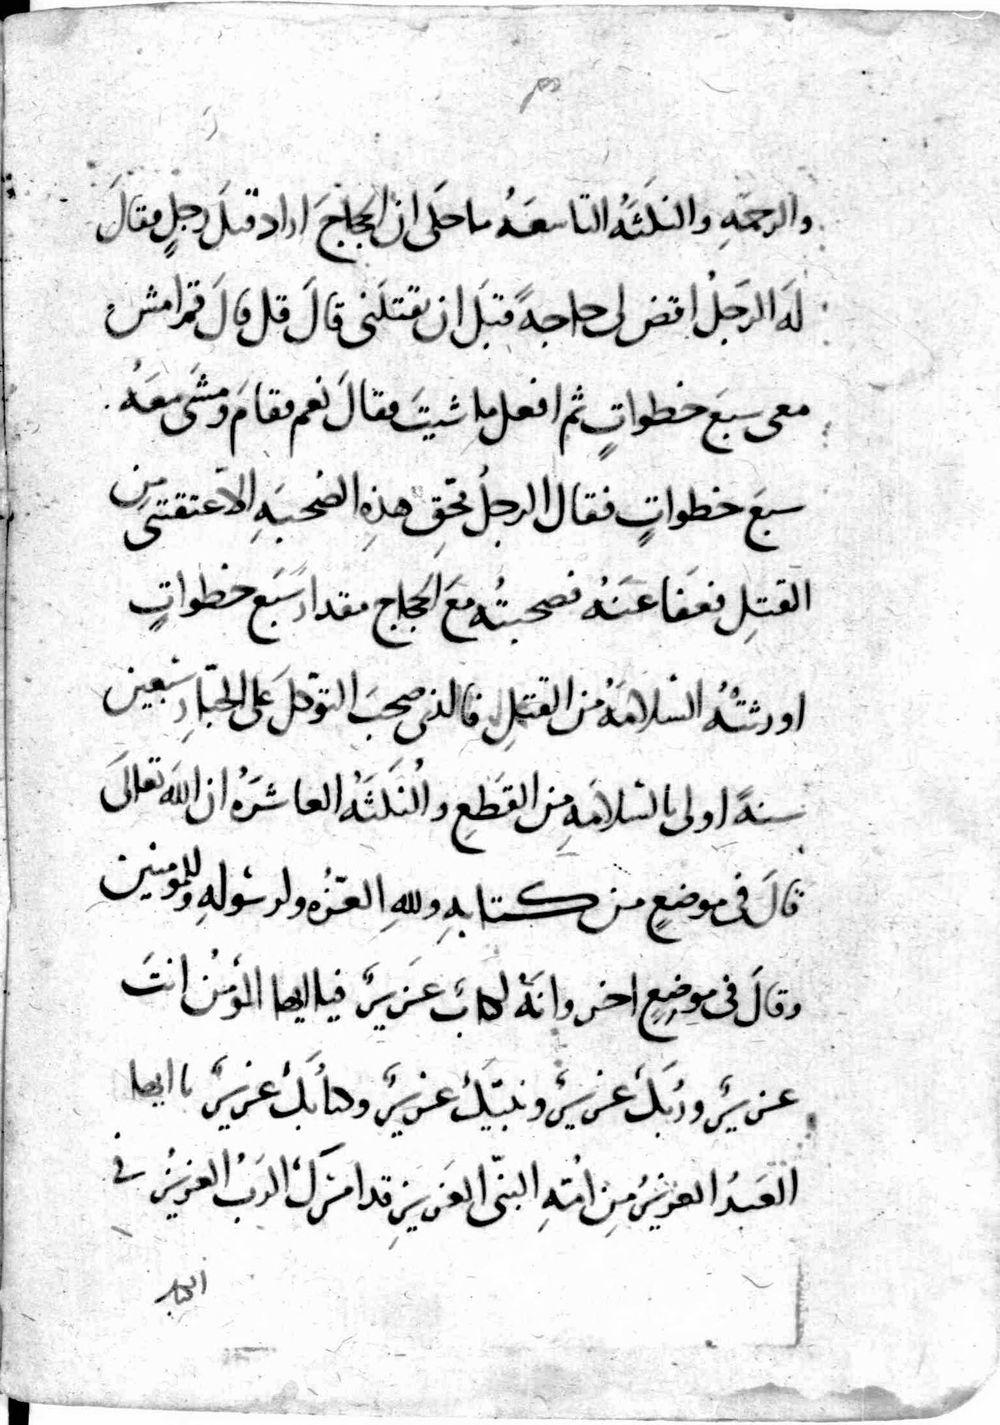 والرحمةِ والنكتَةُ التاسعَةُ ما حكَى ان الحجاجَ اراد قتلَ رجلٍ فقالَ
لَه الرجلُ اقض لى حاجةً قبلَ ان تقتلَنى قالَ قل قالَ قم امش
معى سبعَ خطواتٍ ثم افعل ما شيتَ فقالَ نعم فقامَ ومشَى معَهُ
سبعَ خطواتٍ فقال الرجلُ بحَقِ هذِهِ الصُحبَةِ الاّ عتقتنى من
القتلِ فعفَا عنَهُ فصحبتُه معَ الحجاج مقدارَ سَبَع خطواتٍ
اورثتْهُ السَلامَةُ من القتلِ فالذى صحبَ التوكلَ على الجبّارِ سبعين
سنةً اولى بالسّلامَةِ من القَطعِ والنُكَتَةُ العاشرَةُ ان اللَه تعالَى
قالَ فى موضعٍ من كتابهِ وللهِ العزّةُ ولرسُولِهِ وللمؤمنين
وقالَ فى موضِعٍ اخر وانَهُ لكتابٌ عَزيزٌ فيا ايها المؤمنُ انتَ
عزيزٌ وربُكَ عزيزٌ ونبيّكَ عزيزٌ وكتابُكَ عزيزٌ يا ايها
العَبدُ العزيزُ مِن امُتهِ النبّى العَزيزِ قد امرَكَ الربُ العزيزُ فى